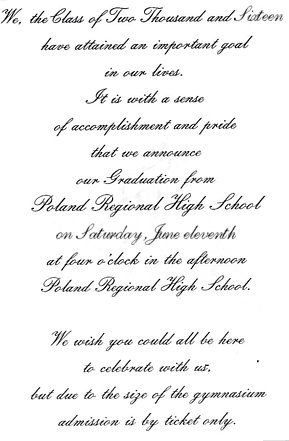 We, the Class of Two Thousand and Sixteen
have attained an important goal
in our lives.
It is with a sense
of accomplishment and pride
that we announce
our Graduation from
Poland Regional High School
on Saturday, June eleventh
at four o'clock in the afternoon
Poland Regional High School.
We wish you could all be here
to celebrate with us,
but due to the size of the gymnasium
admission is by ticket only.